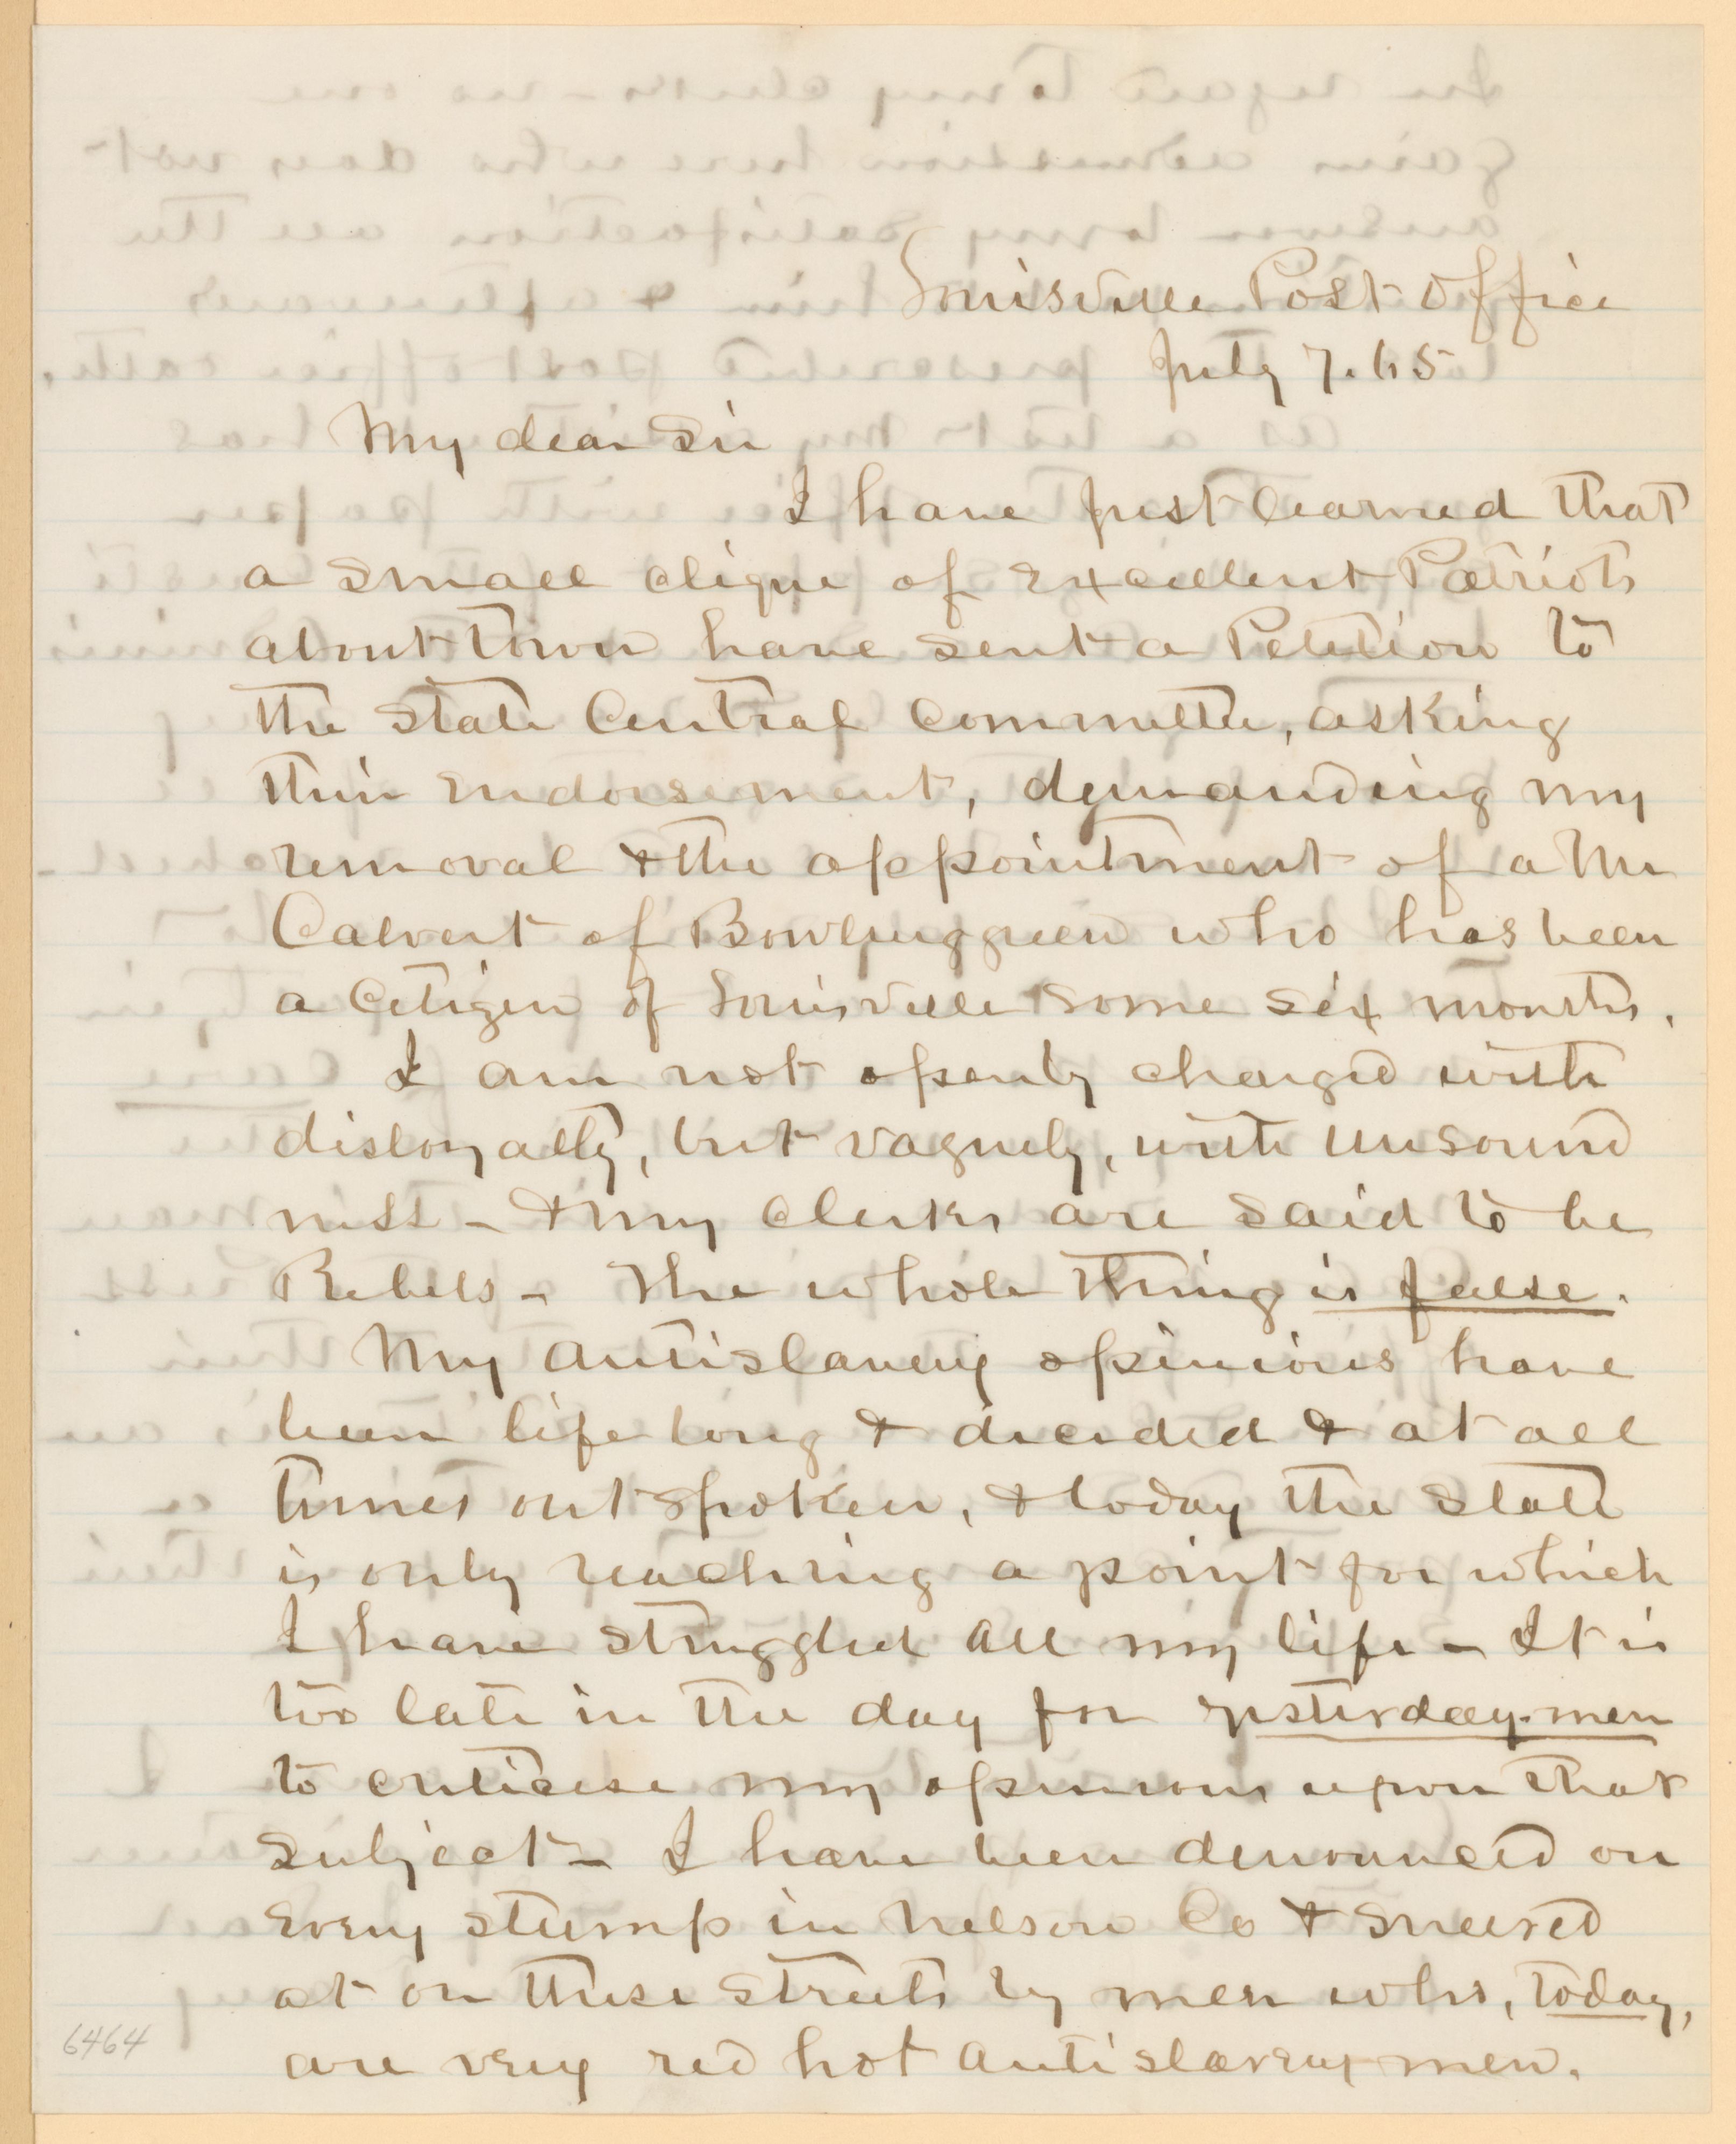 Louisville Post Office
July 7. 65
My dear Sir
I have just learned that
a small clique of excellent Patriots
about town have sent a Petition to
the State Central Committee, asking
their endorsement, demanding my
removal & the appointment of a Mr
Calvert of Bowlinggreen who has been
a Citizen of Louisville some six months.
I am not openly charged with
disloyalty, but vaguely, with unsound
ness - & my clerks are said to be
Rebels - The whole thing is false.
My antislavery opinions have
been life long & decided & at all
times outspoken, & today the State
is only reaching a point for which
I have struggled all my life - It is
too late in the day for yesterday-men
to criticise my opinions upon that
subject - I have been denounced on
every stump in Nelson Co & sneered
at on these streets by men who, today,
are very red hot antislavery men.
6464